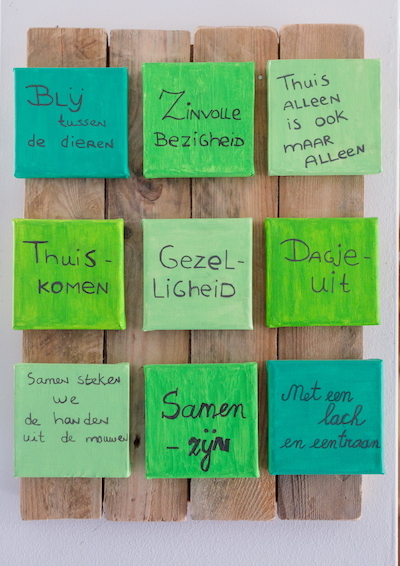 Blij
tussen
de dieren
Zinvolle
Bezigheid
Thuis
alleen
is ook
maar
alleen
Thuis-
komen
Gezel-
ligheid
Dagje-
uit
Samen steken
we
de handen
uit de mouwen
Samen
-zijn
Met een
lach
en een traan